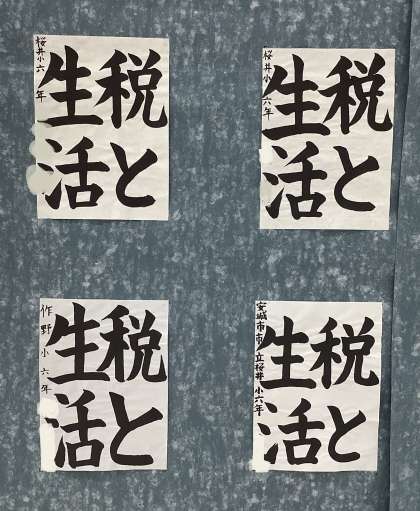 税と
生活
桜井小六年
税と
生活
桜井小六年
税と
生活
作野小六年
税と
生活
安城市市立桜井小六年